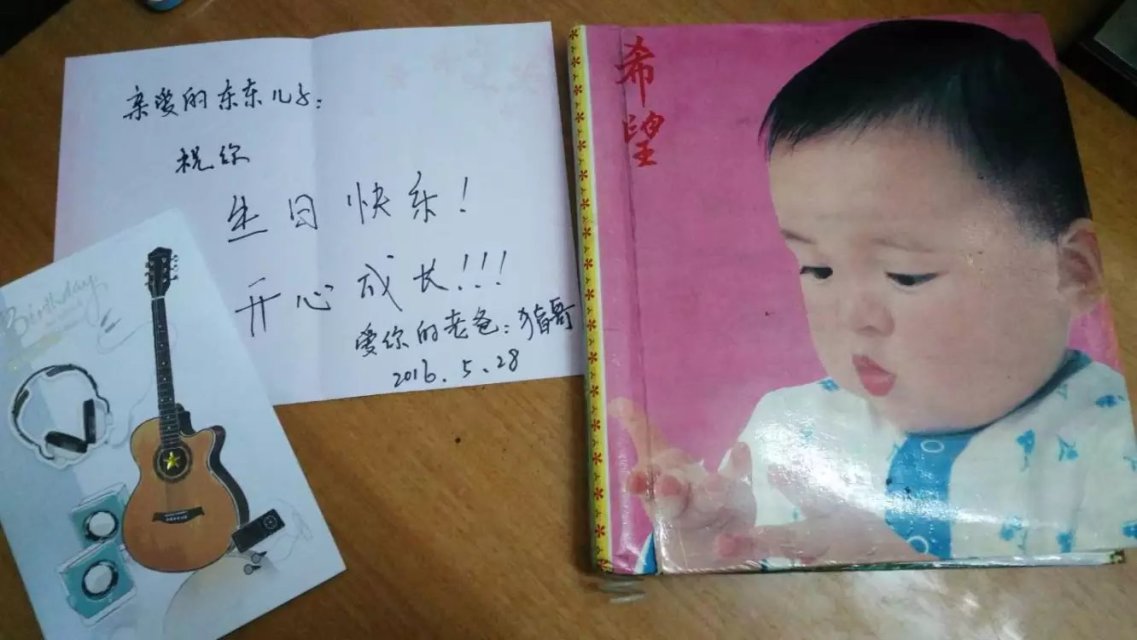 亲爱的东东儿子:
祝你
生日快乐!
开心成长!!!
爱你的老爸:猪哥
2016.5.28
Birthday
希望